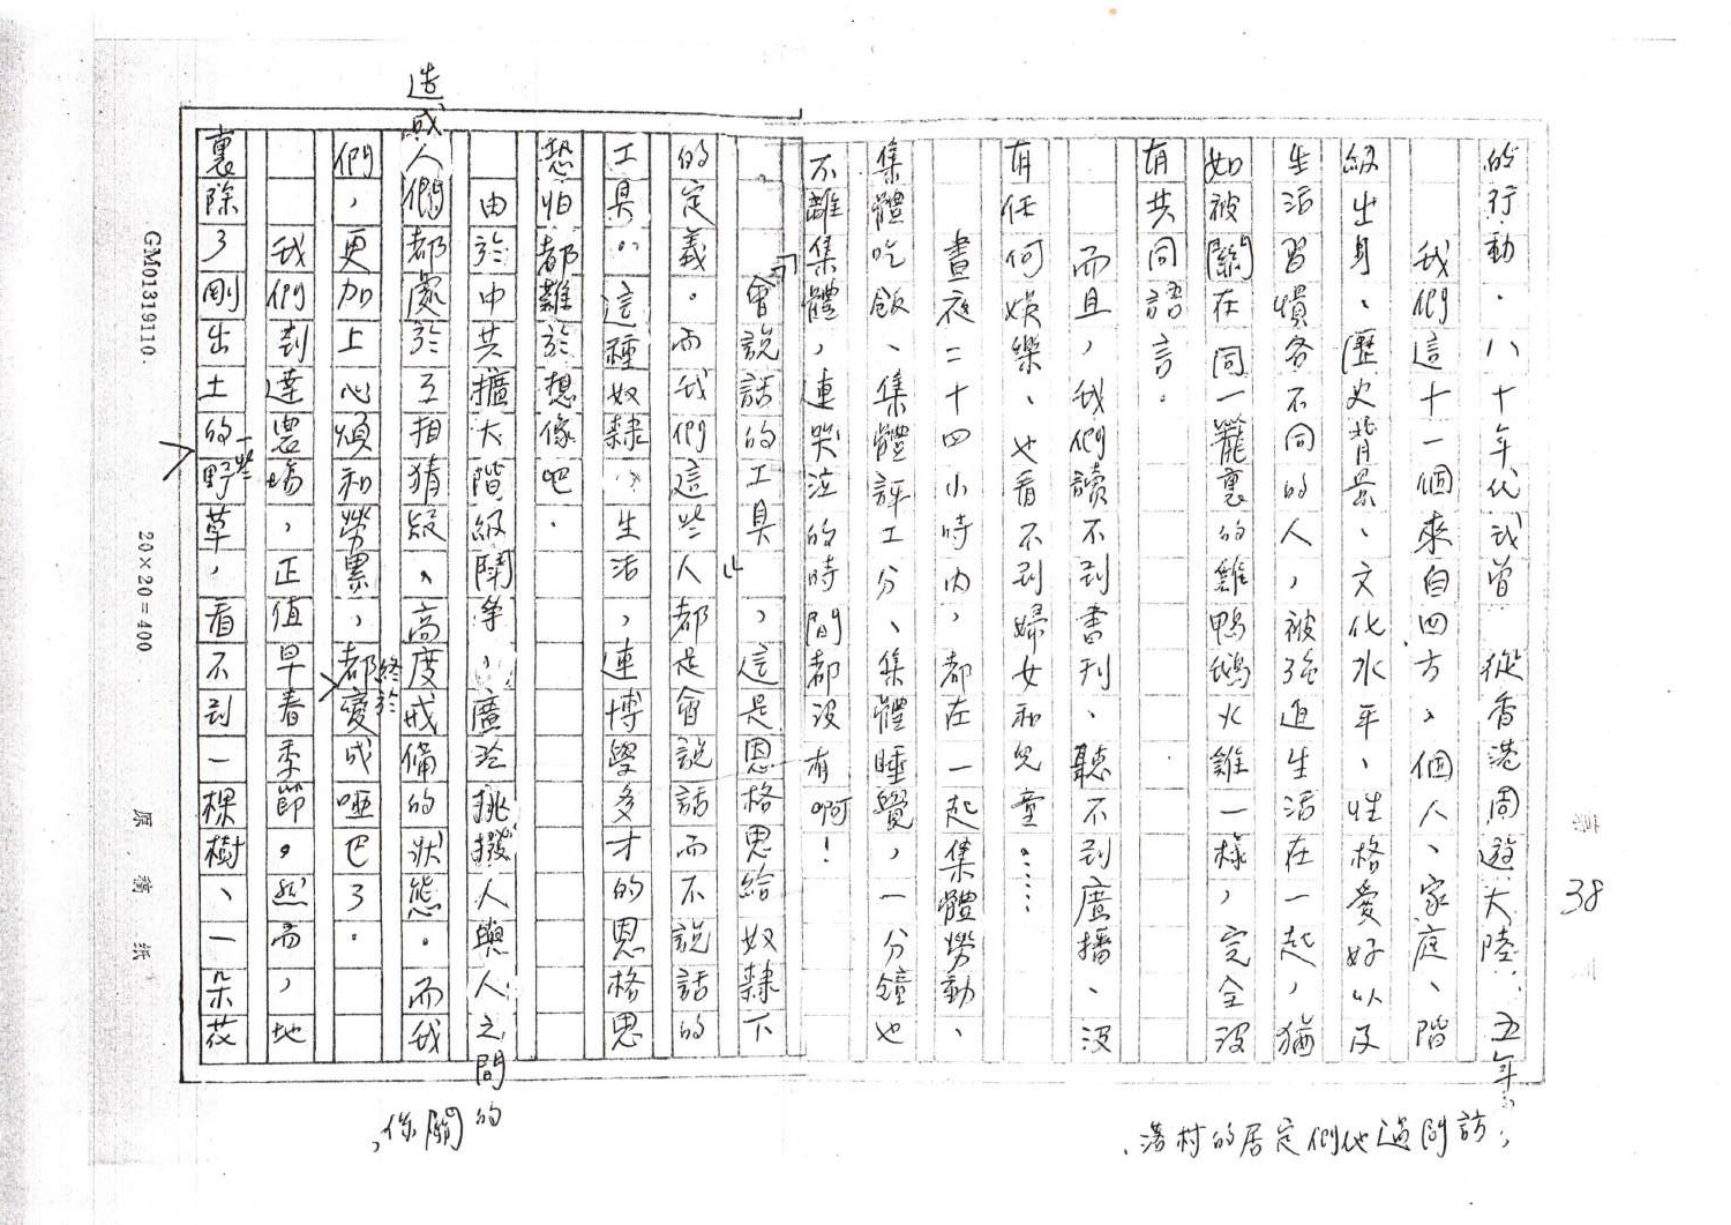 38
的行動。八十年代我曾從香港周遊大陸五年,
訪問過他們定居的村落.
我們這十一個來自四方、個人、家庭、階
級出身、歷史背景、文化水平、性格愛好以及
生活習慣各不同的人,被強迫生活在一起,猶
如被關在同一籠裏的雞鴨鵝火雞一樣,完全沒
有共同語言。
而且,我們讀不到書刊、聽不到廣播、沒
有任何娛樂、也看不到婦女和兒童。……
晝夜二十四小時內,都在一起集體勞動、
集體吃飯、集體評工分、集體睡覺,一分鐘也
不離集體,連哭泣的時間都沒有啊!
「會說話的工具」,這是恩格思給奴隸下
的定義。而我們這些人都是會說話而不說話的
工具。這種奴隸生活,連博學多才的恩格思
恐怕都難於想像吧.
由於中共擴大階級鬪爭,廣泛挑撥人與人之間
的關係,
造成人們都處於互相猜疑、高度戒備的狀態。而我
們,更加上心煩和勞累,終於都變成啞巴了.
我們到達農場,正值早春季節。然而,地
裏除了剛出土的一些野草,看不到一棵樹、一朵花
GM01319110.
20×20=400
原 稿 紙